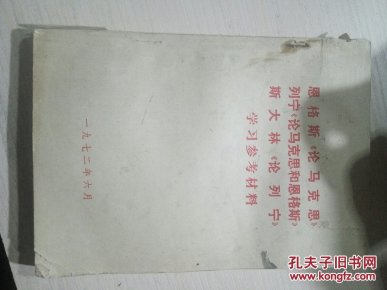 恩格斯《论马克思》
列宁《论马克思和恩格斯》
斯大林《论列宁》
学习参考材料
一九七二年六月
孔夫子旧书网